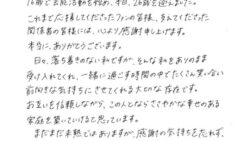 16歳で芸能活動を始め、今日、26歳を迎えました。
これまで応援してくださったファンの皆様、支えてくださった
関係者の皆様には、心より感謝申し上げます。
本当に、ありがとうございます。
日々、落ち着きのない私ですが、そんな私をありのまま
受け入れてくれ、一緒に過ごす時間の中でたくさん笑い合い
前向きな気持ちにさせてくれる大切な存在です。
お互いを信頼しながら、この人となら ささやかな幸せのある
家庭を築いていけると思っています。
まだまだ未熟ではありますが、感謝の気持ちを忘れず、